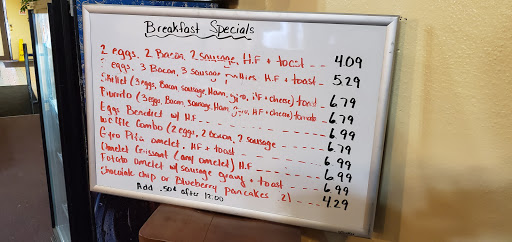 Breakfast Specials
2 eggs, 2 Bacon, 2 sausage, H.F + toast - - 4.09
eggs, 3 Bacon, 3 sausage patties H.F + toast - 5.29
Skillet (3 eggs, Bacon, sausage, Ham, gyro, H.F + cheese) toast - 6.79
Burrito (3 eggs, Bacon, Sausage, Ham, Gyro, H.F + cheese) tomato - 6.79
Eggs Benedict w/ H.F - - - - - - 6.99
Waffle Combo (2 eggs, 2 bacon, 2 sausage - - - - 6.79
Gyro Pita omelet, HF + toast - - - - 6.99
Omelet Croissant (any omelet) H.F - - - - 6.99
Potato omelet w/ sausage gravy + toast - - - - 6.99
Chocolate chip or Blueberry pancakes 2) - - - 4.29
Add .50¢ after 12:00